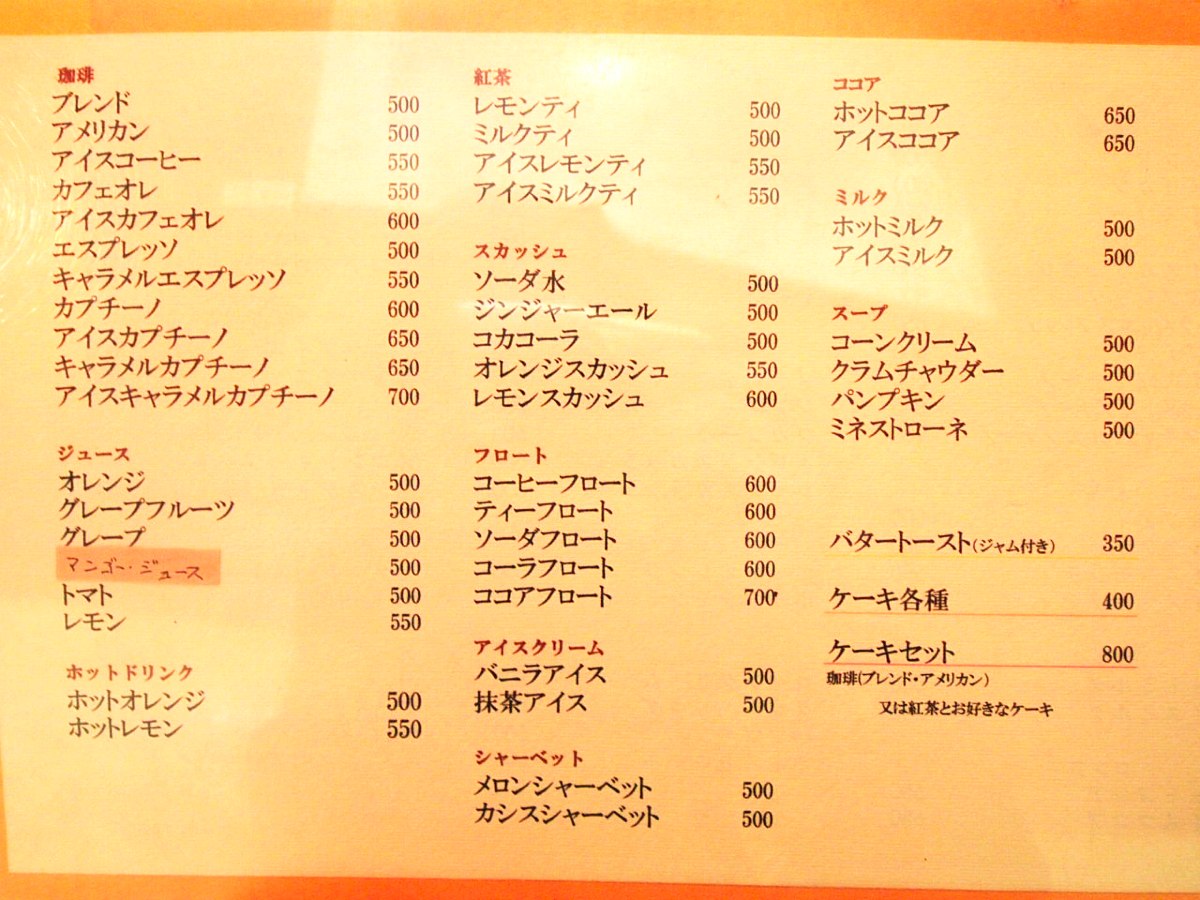 珈琲
ブレンド 500
アメリカン 500
アイスコーヒー 550
カフェオレ 550
アイスカフェオレ 600
エスプレッソ 500
キャラメルエスプレッソ 550
カプチーノ 600
アイスカプチーノ 650
キャラメルカプチーノ 650
アイスキャラメルカプチーノ 700
ジュース
オレンジ 500
グレープフルーツ 500
グレープ 500
マンゴー・ジュース 500
トマト 500
レモン 550
ホットドリンク
ホットオレンジ 500
ホットレモン 550
紅茶
レモンティ 500
ミルクティ 500
アイスレモンティ 550
アイスミルクティ 550
スカッシュ
ソーダ水 500
ジンジャーエール 500
コカコーラ 500
オレンジスカッシュ 550
レモンスカッシュ 600
フロート
コーヒーフロート 600
ティーフロート 600
ソーダフロート 600
コーラフロート 600
ココアフロート 700
アイスクリーム
バニラアイス 500
抹茶アイス 500
シャーベット
メロンシャーベット 500
カシスシャーベット 500
ココア
ホットココア 650
アイスココア 650
ミルク
ホットミルク 500
アイスミルク 500
スープ
コーンクリーム 500
クラムチャウダー 500
パンプキン 500
ミネストローネ 500
バタートースト(ジャム付き) 350
ケーキ各種 400
ケーキセット 800
珈琲(ブレンド・アメリカン)
又は紅茶とお好きなケーキ